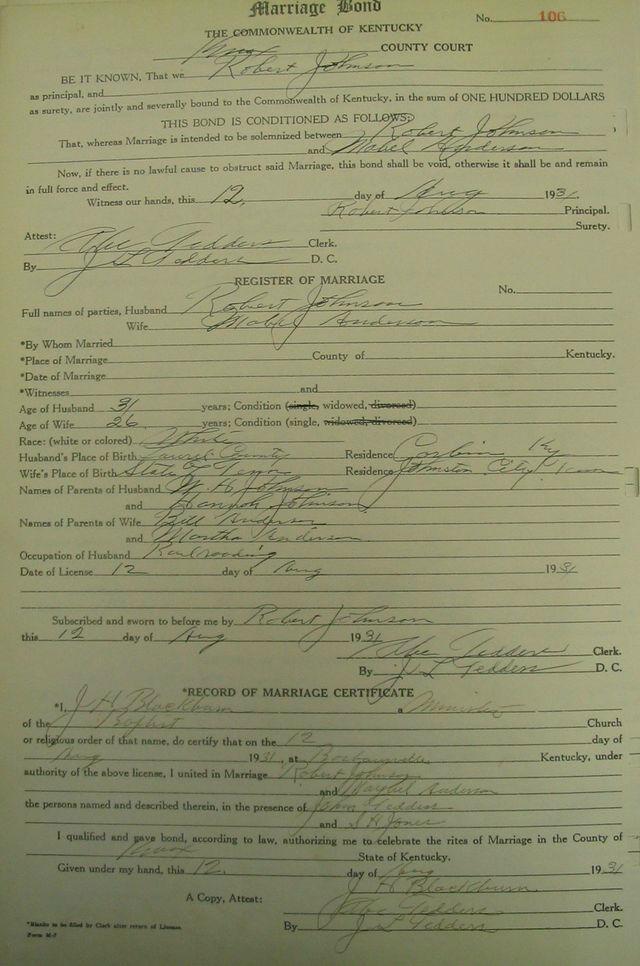 Marriage Bond
No. 106
THE COMMONWEALTH OF KENTUCKY
Knox COUNTY COURT
BE IT KNOWN, That we Robert Johnson
as principal, and
as surety, are jointly and severally bound to the Commonwealth of Kentucky, in the sum of ONE HUNDRED DOLLARS
THIS BOND IS CONDITIONED AS FOLLOWS:
That, whereas Marriage is intended to be solemnized between Robert Johnson
and Mabel Anderson
Now, if there is no lawful cause to obstruct said Marriage, this bond shall be void, otherwise it shall be and remain
in full force and effect.
Witness our hands, this 12, day of Aug 1931
Robert Johnson Principal.
Surety.
Attest: Abe Tedders Clerk.
By J L Tedders D. C.
REGISTER OF MARRIAGE
No.
Full names of parties, Husband Robert Johnson
Wife Mabel Anderson
*By Whom Married
*Place of Marriage County of Kentucky.
*Date of Marriage
*Witnesses and
Age of Husband 31 years; Condition (single, widowed, divorced)
Age of Wife 26 years; Condition (single, widowed, divorced)
Race: (white or colored) White
Husband's Place of Birth Laurel County Residence Corbin Ky
Wife's Place of Birth State of Tenn Residence Johnston City Tenn
Names of Parents of Husband W. H. Johnson
and Hannah Johnson
Names of Parents of Wife Bill Anderson
and Martha Anderson
Occupation of Husband Railroading
Date of License 12 day of Aug 1931
Subscribed and sworn to before me by Robert Johnson
this 12 day of Aug 1931
Abe Tedders Clerk.
By J L Tedders D. C.
*RECORD OF MARRIAGE CERTIFICATE
*I, J H Blackburn a Minister
of the Baptist Church
or religious order of that name, do certify that on the 12 day of
Aug 1931, at Kentucky, under
authority of the above license, I united in Marriage Robert Johnson
and Maybel Anderson
the persons named and described therein, in the presence of Tedders
and S H Jones
I qualified and gave bond, according to law, authorizing me to celebrate the rites of Marriage in the County of
Knox State of Kentucky.
Given under my hand, this 12, day of Aug 1931
J H Blackburn
A Copy, Attest: Abe Tedders Clerk.
By J L Tedders D. C.
*Blanks to be filled by Clerk after return of License.
Form M-7